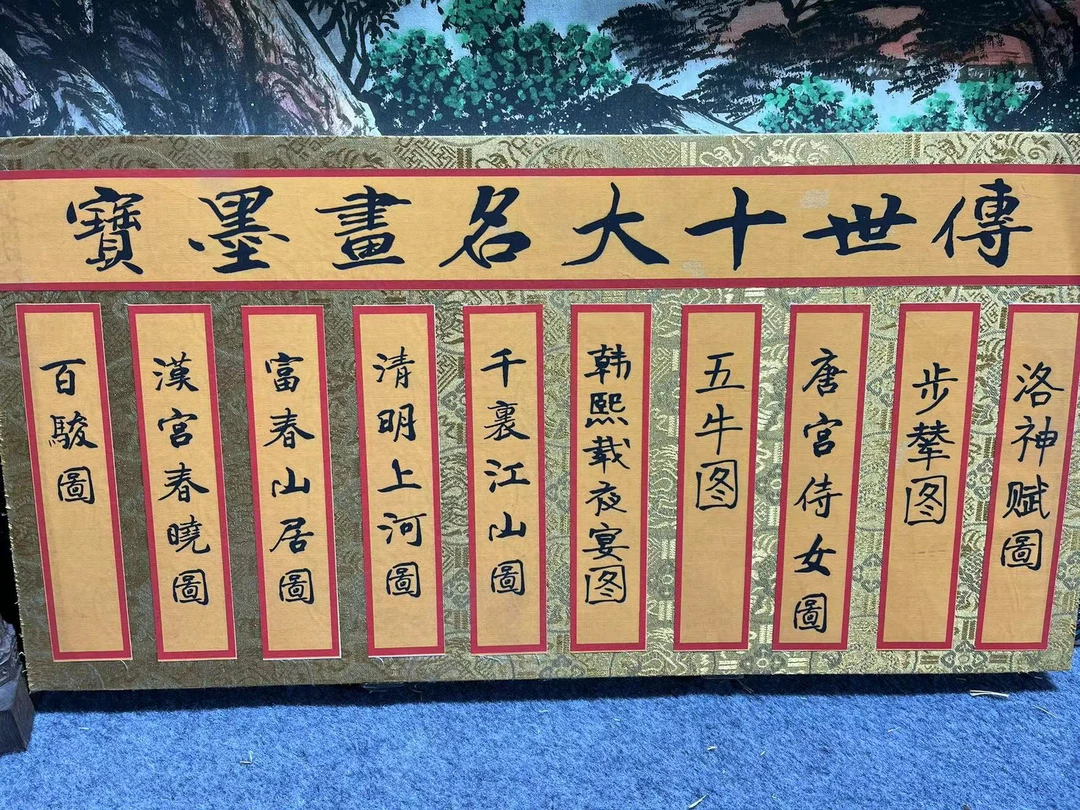 傳世十大名畫墨寶
洛神赋圖
步輦图
唐宫侍女圖
五牛图
韩熙载夜宴图
千裏江山圖
清明上河圖
富春山居圖
漢宫春曉圖
百駿圖